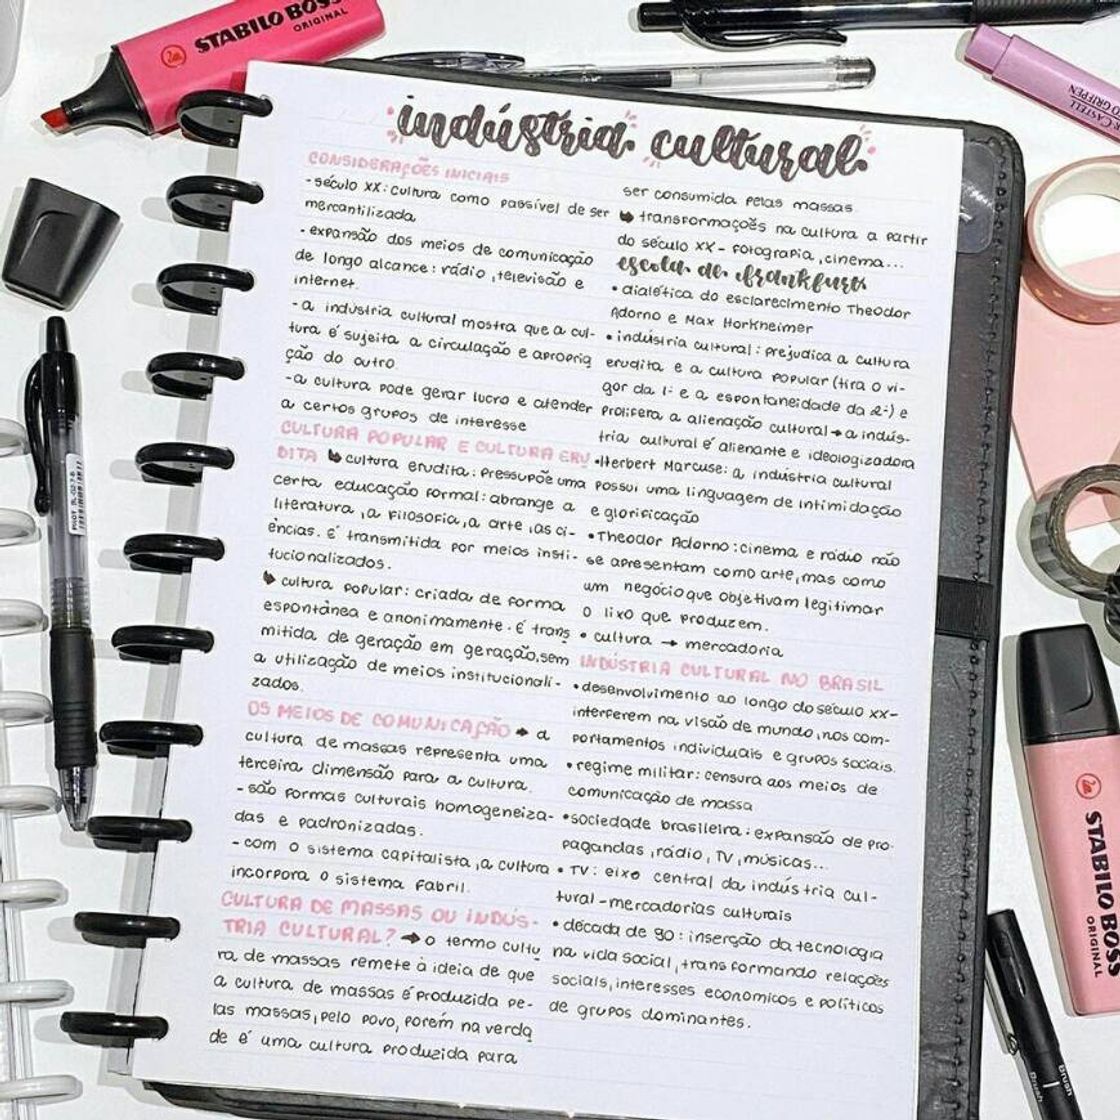 STABILO BOSS
ORIGINAL
indústria cultural
CONSIDERAÇÕES INICIAIS
- século XX: cultura como passível de ser
mercantilizada
- expansão dos meios de comunicação
de longo alcance: rádio, televisão e
internet.
- a indústria cultural mostra que a cul-
tura é sujeita a circulação e apropria
ção do outro
- a cultura pode gerar lucro e atender
a certos grupos de interesse
CULTURA POPULAR E CULTURA ERU
DITA ↳ cultura erudita: pressupõe uma
certa educação formal: abrange a
literatura, a filosofia, a arte, as ci-
ências. É transmitida por meios insti-
tucionalizados.
↳ cultura popular: criada de forma
espontânea e anonimamente. É trans
mitida de geração em geração, sem
a utilização de meios institucionali-
zados.
OS MEIOS DE COMUNICAÇÃO → a
cultura de massas representa uma
terceira dimensão para a cultura.
- são formas culturais homogeneiza-
das e padronizadas.
- com o sistema capitalista, a cultura
incorpora o sistema fabril.
CULTURA DE MASSAS OU INDÚS-
TRIA CULTURAL? → o termo cultu
ra de massas remete à ideia de que
a cultura de massas é produzida pe-
las massas, pelo povo, porém na verda
de é uma cultura produzida para
ser consumida pelas massas.
↳ transformações na cultura a partir
do século XX - fotografia, cinema...
escola de frankfurt
• dialética do esclarecimento Theodor
Adorno e Max Horkheimer
• indústria cultural: prejudica a cultura
erudita e a cultura popular (tira o vi-
gor da 1ª e a espontaneidade da 2ª) e
prolifera a alienação cultural → a indús-
tria cultural é alienante e ideologizadora
• Herbert Marcuse: a indústria cultural
possui uma linguagem de intimidação
e glorificação
• Theodor Adorno: cinema e rádio não
se apresentam como arte, mas como
um negócio que objetivam legitimar
o lixo que produzem.
• cultura → mercadoria
INDÚSTRIA CULTURAL NO BRASIL
• desenvolvimento ao longo do século XX-
interferem na visão de mundo, nos com-
portamentos individuais e grupos sociais.
• regime militar: censura aos meios de
comunicação de massa
• sociedade brasileira: expansão de pro-
pagandas, rádio, TV, músicas...
• TV: eixo central da indústria cul-
tural - mercadorias culturais
• década de 90: inserção da tecnologia
na vida social, transformando relações
sociais, interesses econômicos e políticos
de grupos dominantes.
STABILO BOSS
ORIGINAL
Brush
Brush